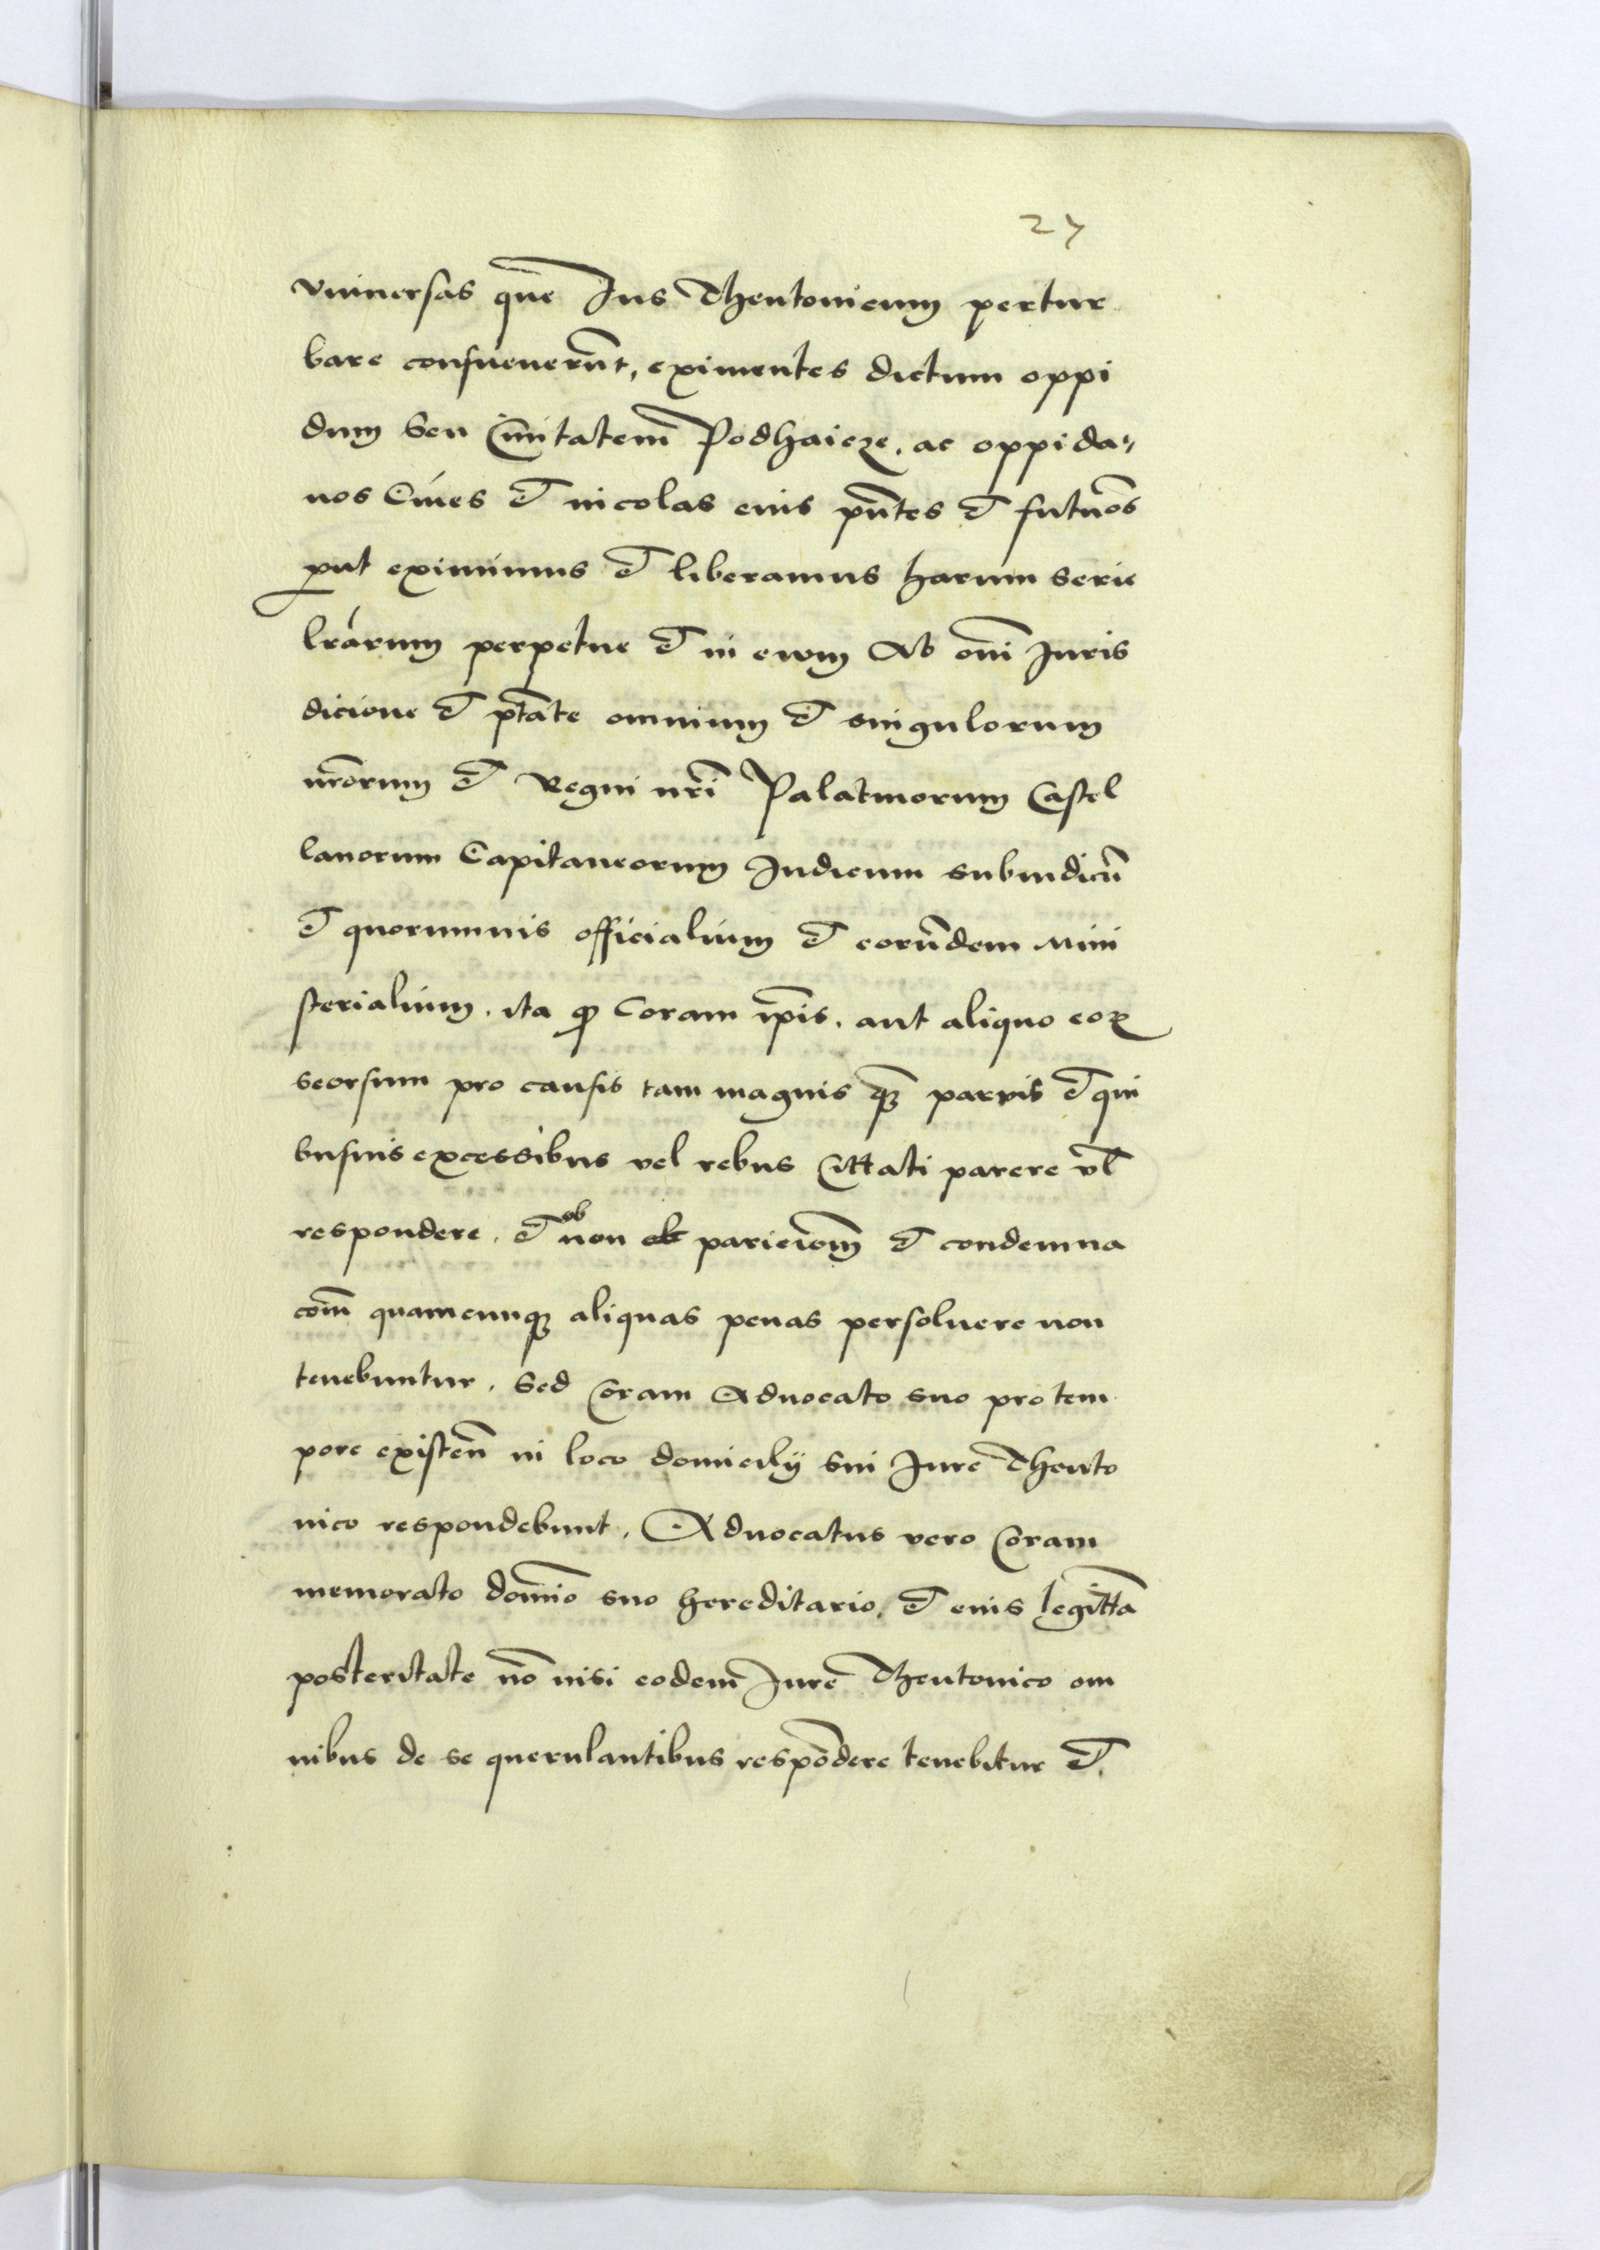 27
vniuersas que Jus Theutonicum pertur
bare consueuerũt, eximentes dictum oppi
dum seu Ciuitatem Podhaicze. ac oppida-
nos Ciues et incolas eius pñtes et futuros
put eximimus et liberamus harum serie
lrarum perpetue et in ewm Ab om̃i Juris
dicione et ptate omnium et singulorum
nrõrum et Regni nri Palatinorum Castel
lanorum Capitaneorum Judicum subiudicũ
et quorumuis officialium et eorũdem mini
sterialium. ita qd Coram ip̃is. aut aliquo eor
seorsum pro causis tam magnis q̃ paruis et qui
busuis excessibus vel rebus Cittati parere vl
respondere. et ob non paricionem̃ et condemna
com̃ quamcunq aliquas penas persoluere non
tenebuntur. Sed Coram Aduocato suo pro tem
pore existeñ in loco domicilij sui Jure Theuto
nico respondebunt. Aduocatus vero Coram
memorato domio suo hereditario, et eius legittã
posteritate nõ nisi eodem Jure Theutonico om
nibus de se querulantibus respõdere tenebitur et